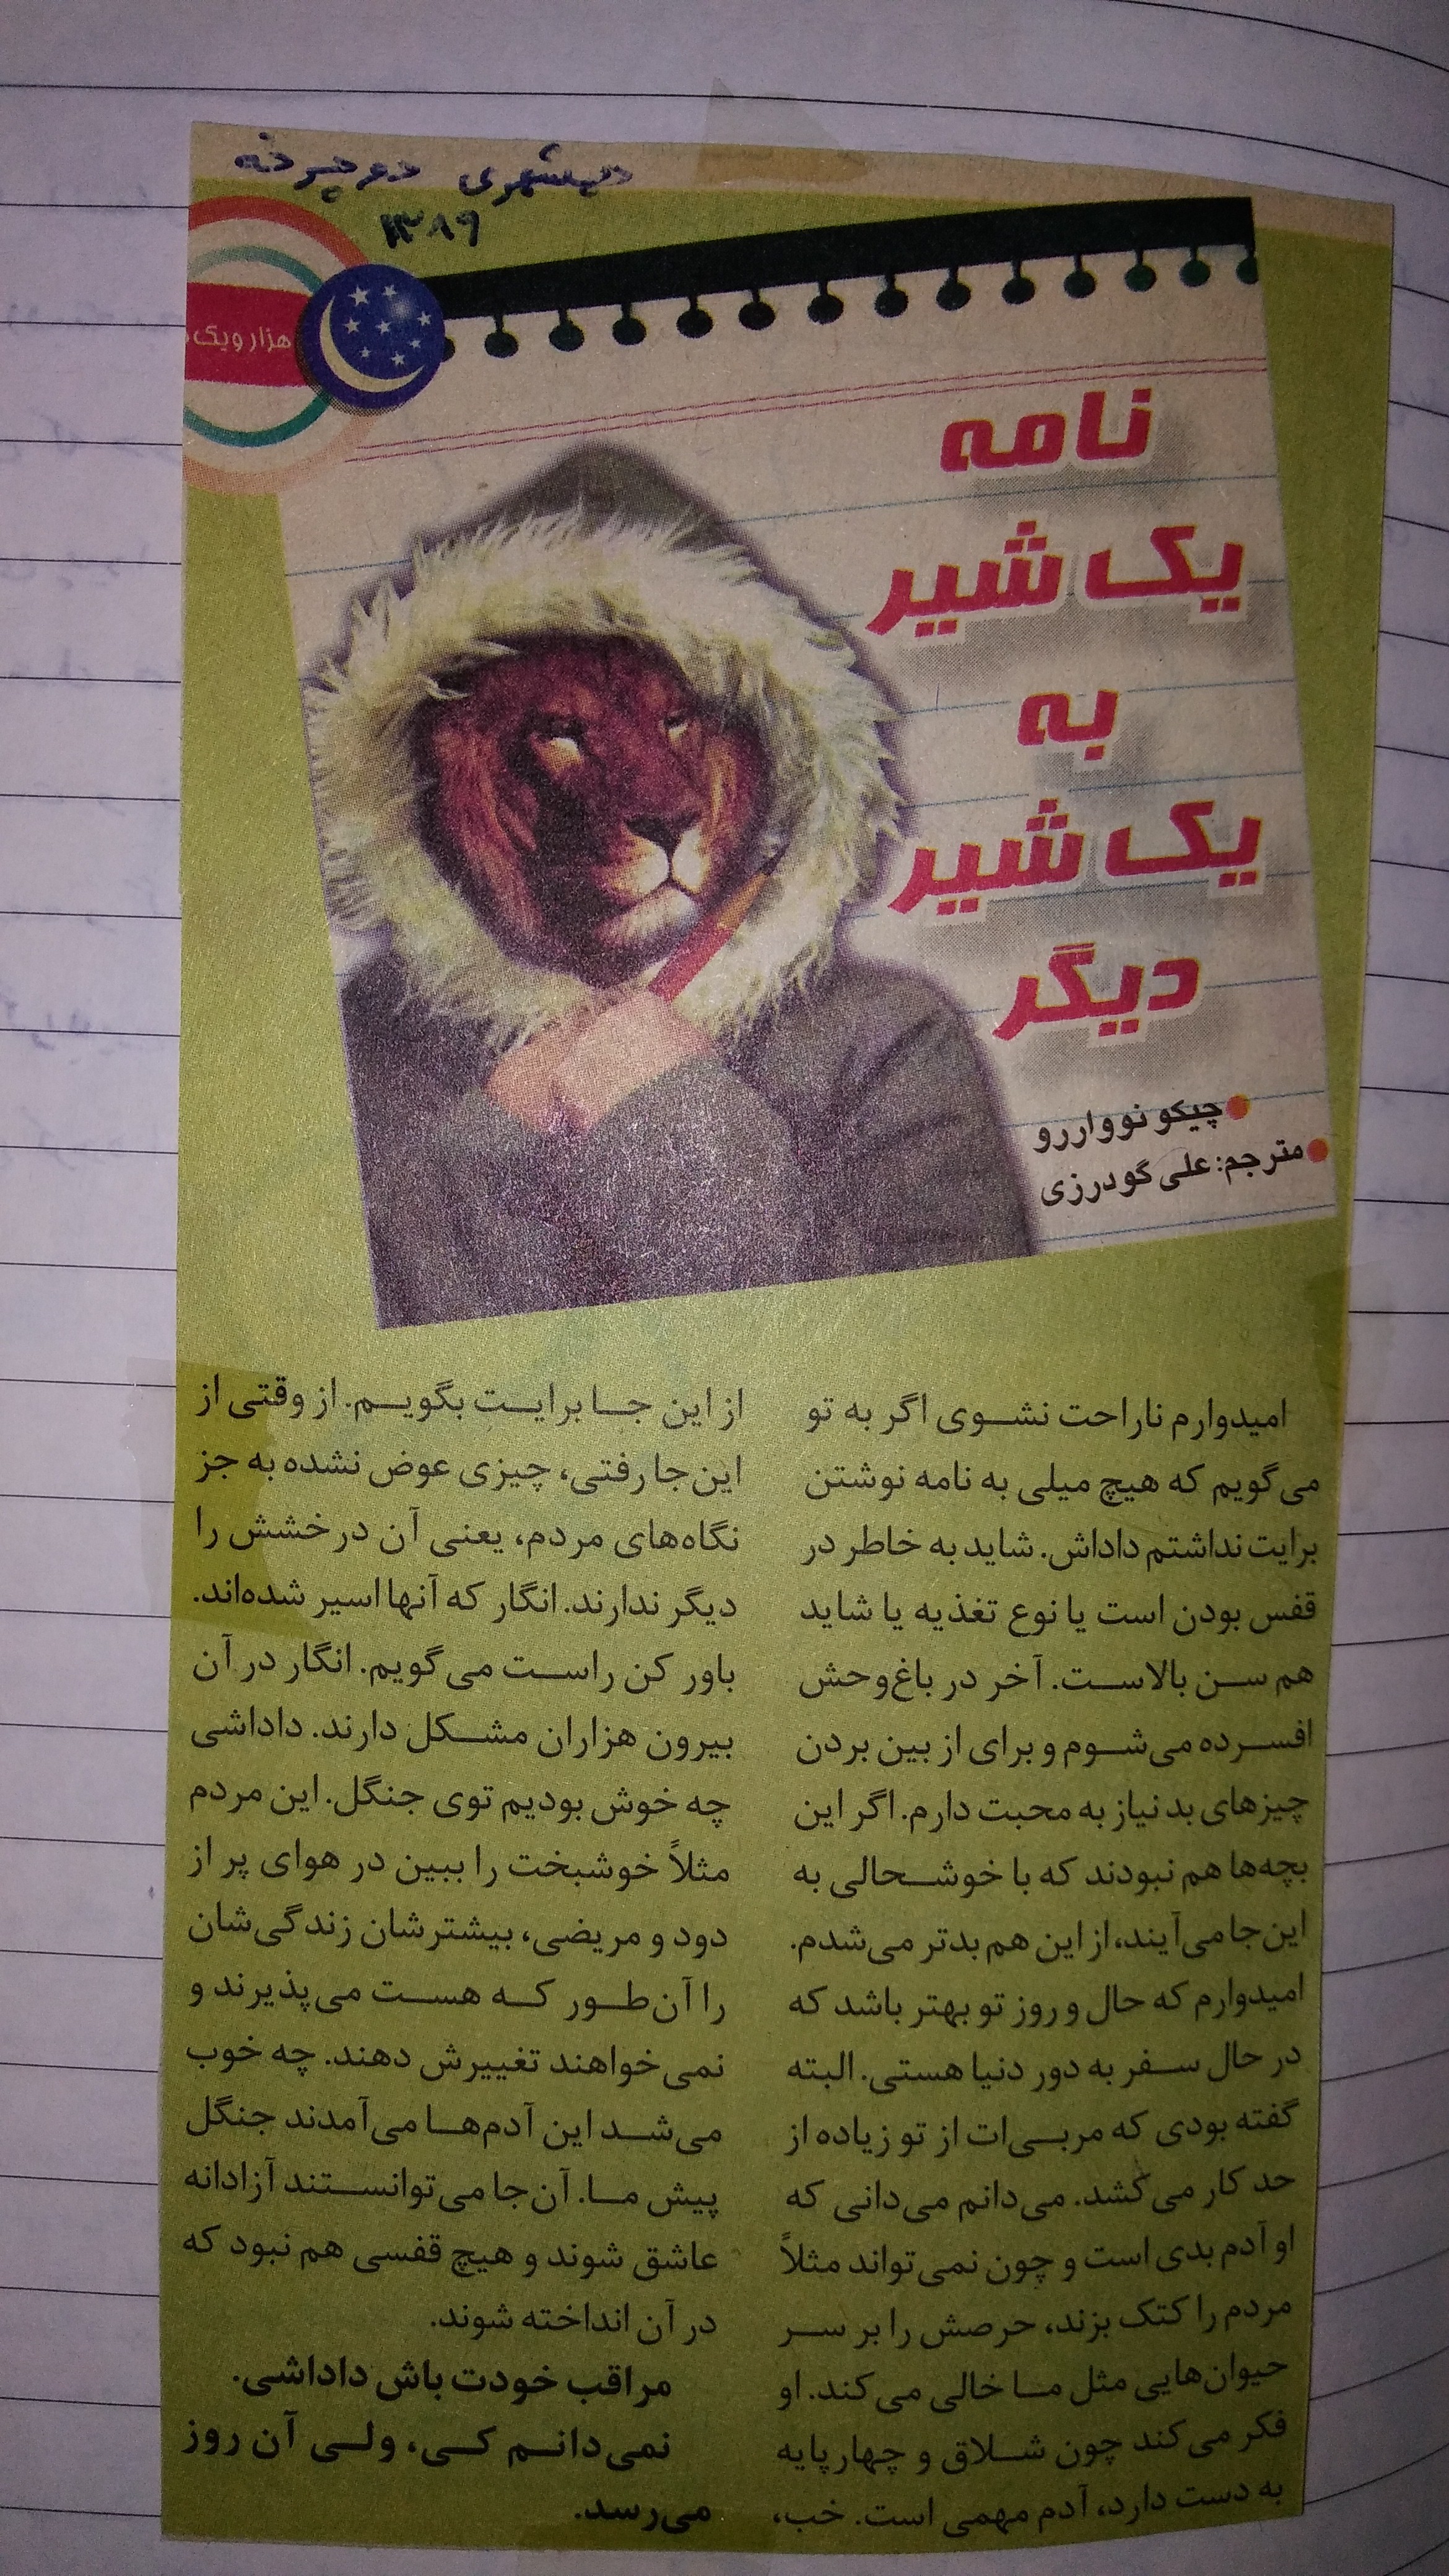 همشهری دوچرخه
۱۳۸۹
هزار و یک
نامه
یک شیر
به
یک شیر
دیگر
چیکو نوواررو
مترجم: علی گودرزی
امیدوارم ناراحت نشوی اگر به تو
می‌گویم که هیچ میلی به نامه نوشتن
برایت نداشتم داداش. شاید به خاطر در
قفس بودن است یا نوع تغذیه یا شاید
هم سن بالاست. آخر در باغ‌وحش
افسرده می‌شوم و برای از بین بردن
چیزهای بد نیاز به محبت دارم. اگر این
بچه‌ها هم نبودند که با خوشحالی به
این‌جا می‌آیند، از این هم بدتر می‌شدم.
امیدوارم که حال و روز تو بهتر باشد که
در حال سفر به دور دنیا هستی. البته
گفته بودی که مربی‌ات از تو زیاده از
حد کار می‌کشد. می‌دانم می‌دانی که
او آدم بدی است و چون نمی‌تواند مثلاً
مردم را کتک بزند، حرصش را بر سر
حیوان‌هایی مثل ما خالی می‌کند. او
فکر می‌کند چون شلاق و چهارپایه
به دست دارد، آدم مهمی است. خب،
از این جا برایت بگویم. از وقتی از
این‌جا رفتی، چیزی عوض نشده به جز
نگاه‌های مردم، یعنی آن درخشش را
دیگر ندارند. انگار که آنها اسیر شده‌اند.
باور کن راست می‌گویم. انگار در آن
بیرون هزاران مشکل دارند. داداشی
چه خوش بودیم توی جنگل. این مردم
مثلاً خوشبخت را ببین در هوای پر از
دود و مریضی، بیشترشان زندگی‌شان
را آن‌طور که هست می‌پذیرند و
نمی‌خواهند تغییرش دهند. چه خوب
می‌شد این آدم‌ها می‌آمدند جنگل
پیش ما. آن‌جا می‌توانستند آزادانه
عاشق شوند و هیچ قفسی هم نبود که
در آن انداخته شوند.
مراقب خودت باش داداشی.
نمی‌دانم کی، ولی آن روز
می‌رسد.